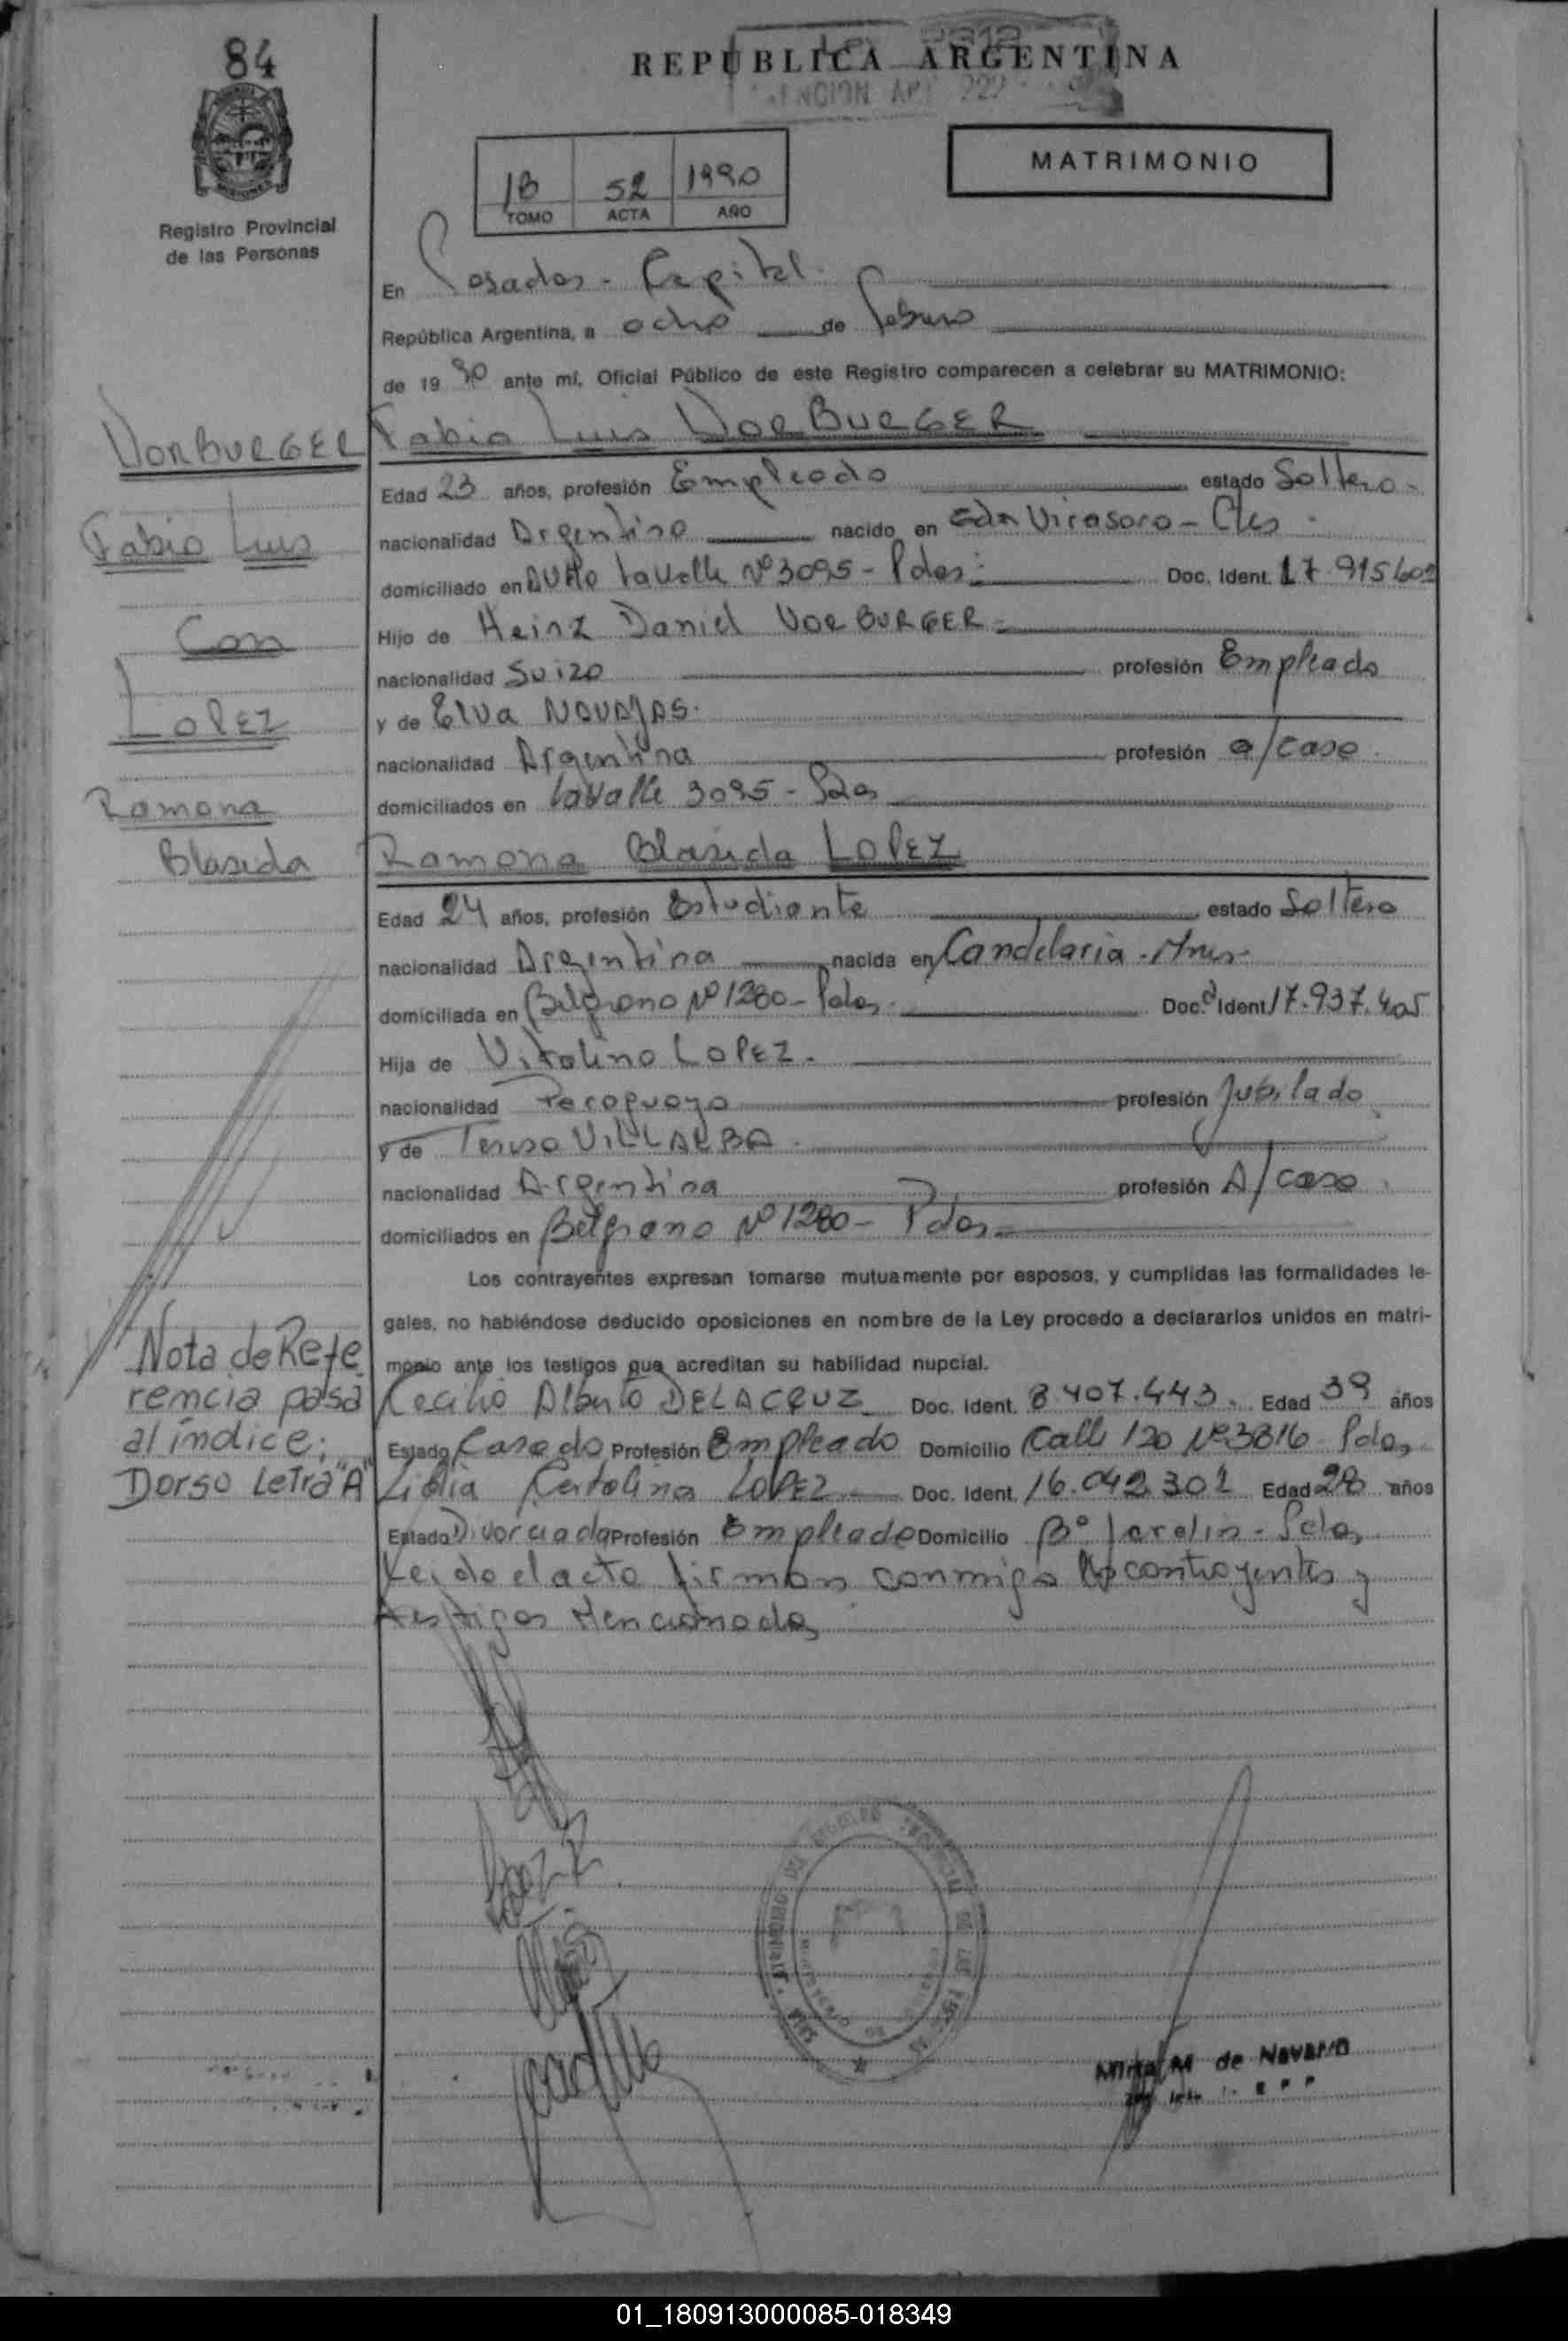 84
REPUBLICA ARGENTINA
1B 52 1990
TOMO ACTA AÑO
MATRIMONIO
Registro Provincial
de las Personas
En Posadas - Capital.
República Argentina, a ocho de febrero
de 1990 ante mí, Oficial Público de este Registro comparecen a celebrar su MATRIMONIO:
VORBURGER
Fabio Luis
Con
LOPEZ
Ramona
Blasida
Fabio Luis VORBURGER
Edad 23 años, profesión Empleado estado Soltero-
nacionalidad Argentino nacido en Gdor Virasoro - Ctes.
domiciliado en Lavalle Nº 3095 - Pdas. Doc. Ident. 17.915602
Hijo de Heinz Daniel VORBURGER-
nacionalidad Suizo profesión Empleado
y de Elva NOVAJAS.
nacionalidad Argentina profesión a/casa.
domiciliados en Lavalle 3095 - Pdas
Ramona Blasida LOPEZ
Edad 24 años, profesión Estudiante estado Soltera
nacionalidad Argentina nacida en Candelaria - Mnes-
domiciliada en Belgrano Nº 1280 - Pdas. Doc. Ident 17.937.405
Hija de Vitalino LOPEZ.
nacionalidad Paraguayo profesión Jubilado
y de Teresa VILLALBA.
nacionalidad Argentina profesión A/casa.
domiciliados en Belgrano Nº 1280 - Pdas.
Los contrayentes expresan tomarse mutuamente por esposos, y cumplidas las formalidades le-
gales, no habiéndose deducido oposiciones en nombre de la Ley procedo a declararlos unidos en matri-
monio ante los testigos que acreditan su habilidad nupcial.
Nota de Refe
rencia pasa
al índice;
Dorso Letra "A"
Cecilio Alberto DELACRUZ Doc. Ident. 8.407.443. Edad 39 años
Estado Casado Profesión Empleado Domicilio Calle 120 Nº 3816 - Pdas,
Lidia Catolina LOPEZ Doc. Ident. 16.042.302 Edad 28 años
Estado Divorciada Profesión Empleada Domicilio Bº Jardin - Pdas,
Leido el acto firman conmigo los contrayentes y
testigos Mencionados
Mirta M de Navarro
01_180913000085-018349